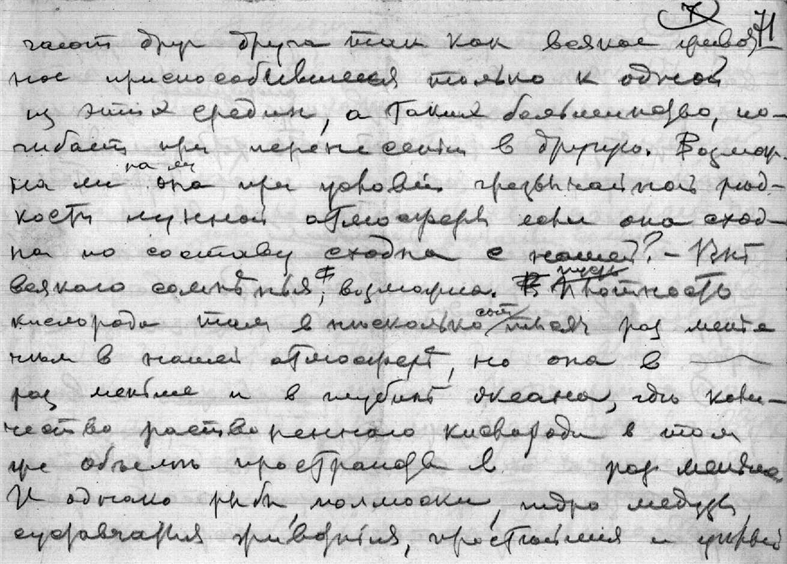 7 71
чают друг друга так как всякое живот
ное приспособившееся только к одной
из этих средин, а таких большинство, по-
гибает при перенесении в другую. Возмож-
на ли она при условии чрезвычайной ред-
кости лунной атмосферы если она сход-
на по составу сходна с нашей? – Внѣ
всякого сомнѣнья, возможна. Плотность
кислорода там в нѣсколько тысяч раз менѣе
чѣм в нашей атмосферѣ, но она в
раз меньше и в глубинѣ океана, гдѣ коли-
чество растворенного кислорода в том
же объемѣ пространства в раз менѣе.
И однако рыбы, моллюски, гидро медузы,
суставчатыя животныя, простѣйшия и